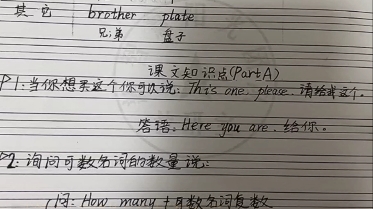 其它 brother plate
兄弟 盘子
课文知识点(PartA)
P1:当你想要这个你可以说: This one, please. 请给我这个.
答语: Here you are. 给你。
P2: 询问可数名词的数量说:
问: How many +可数名词复数